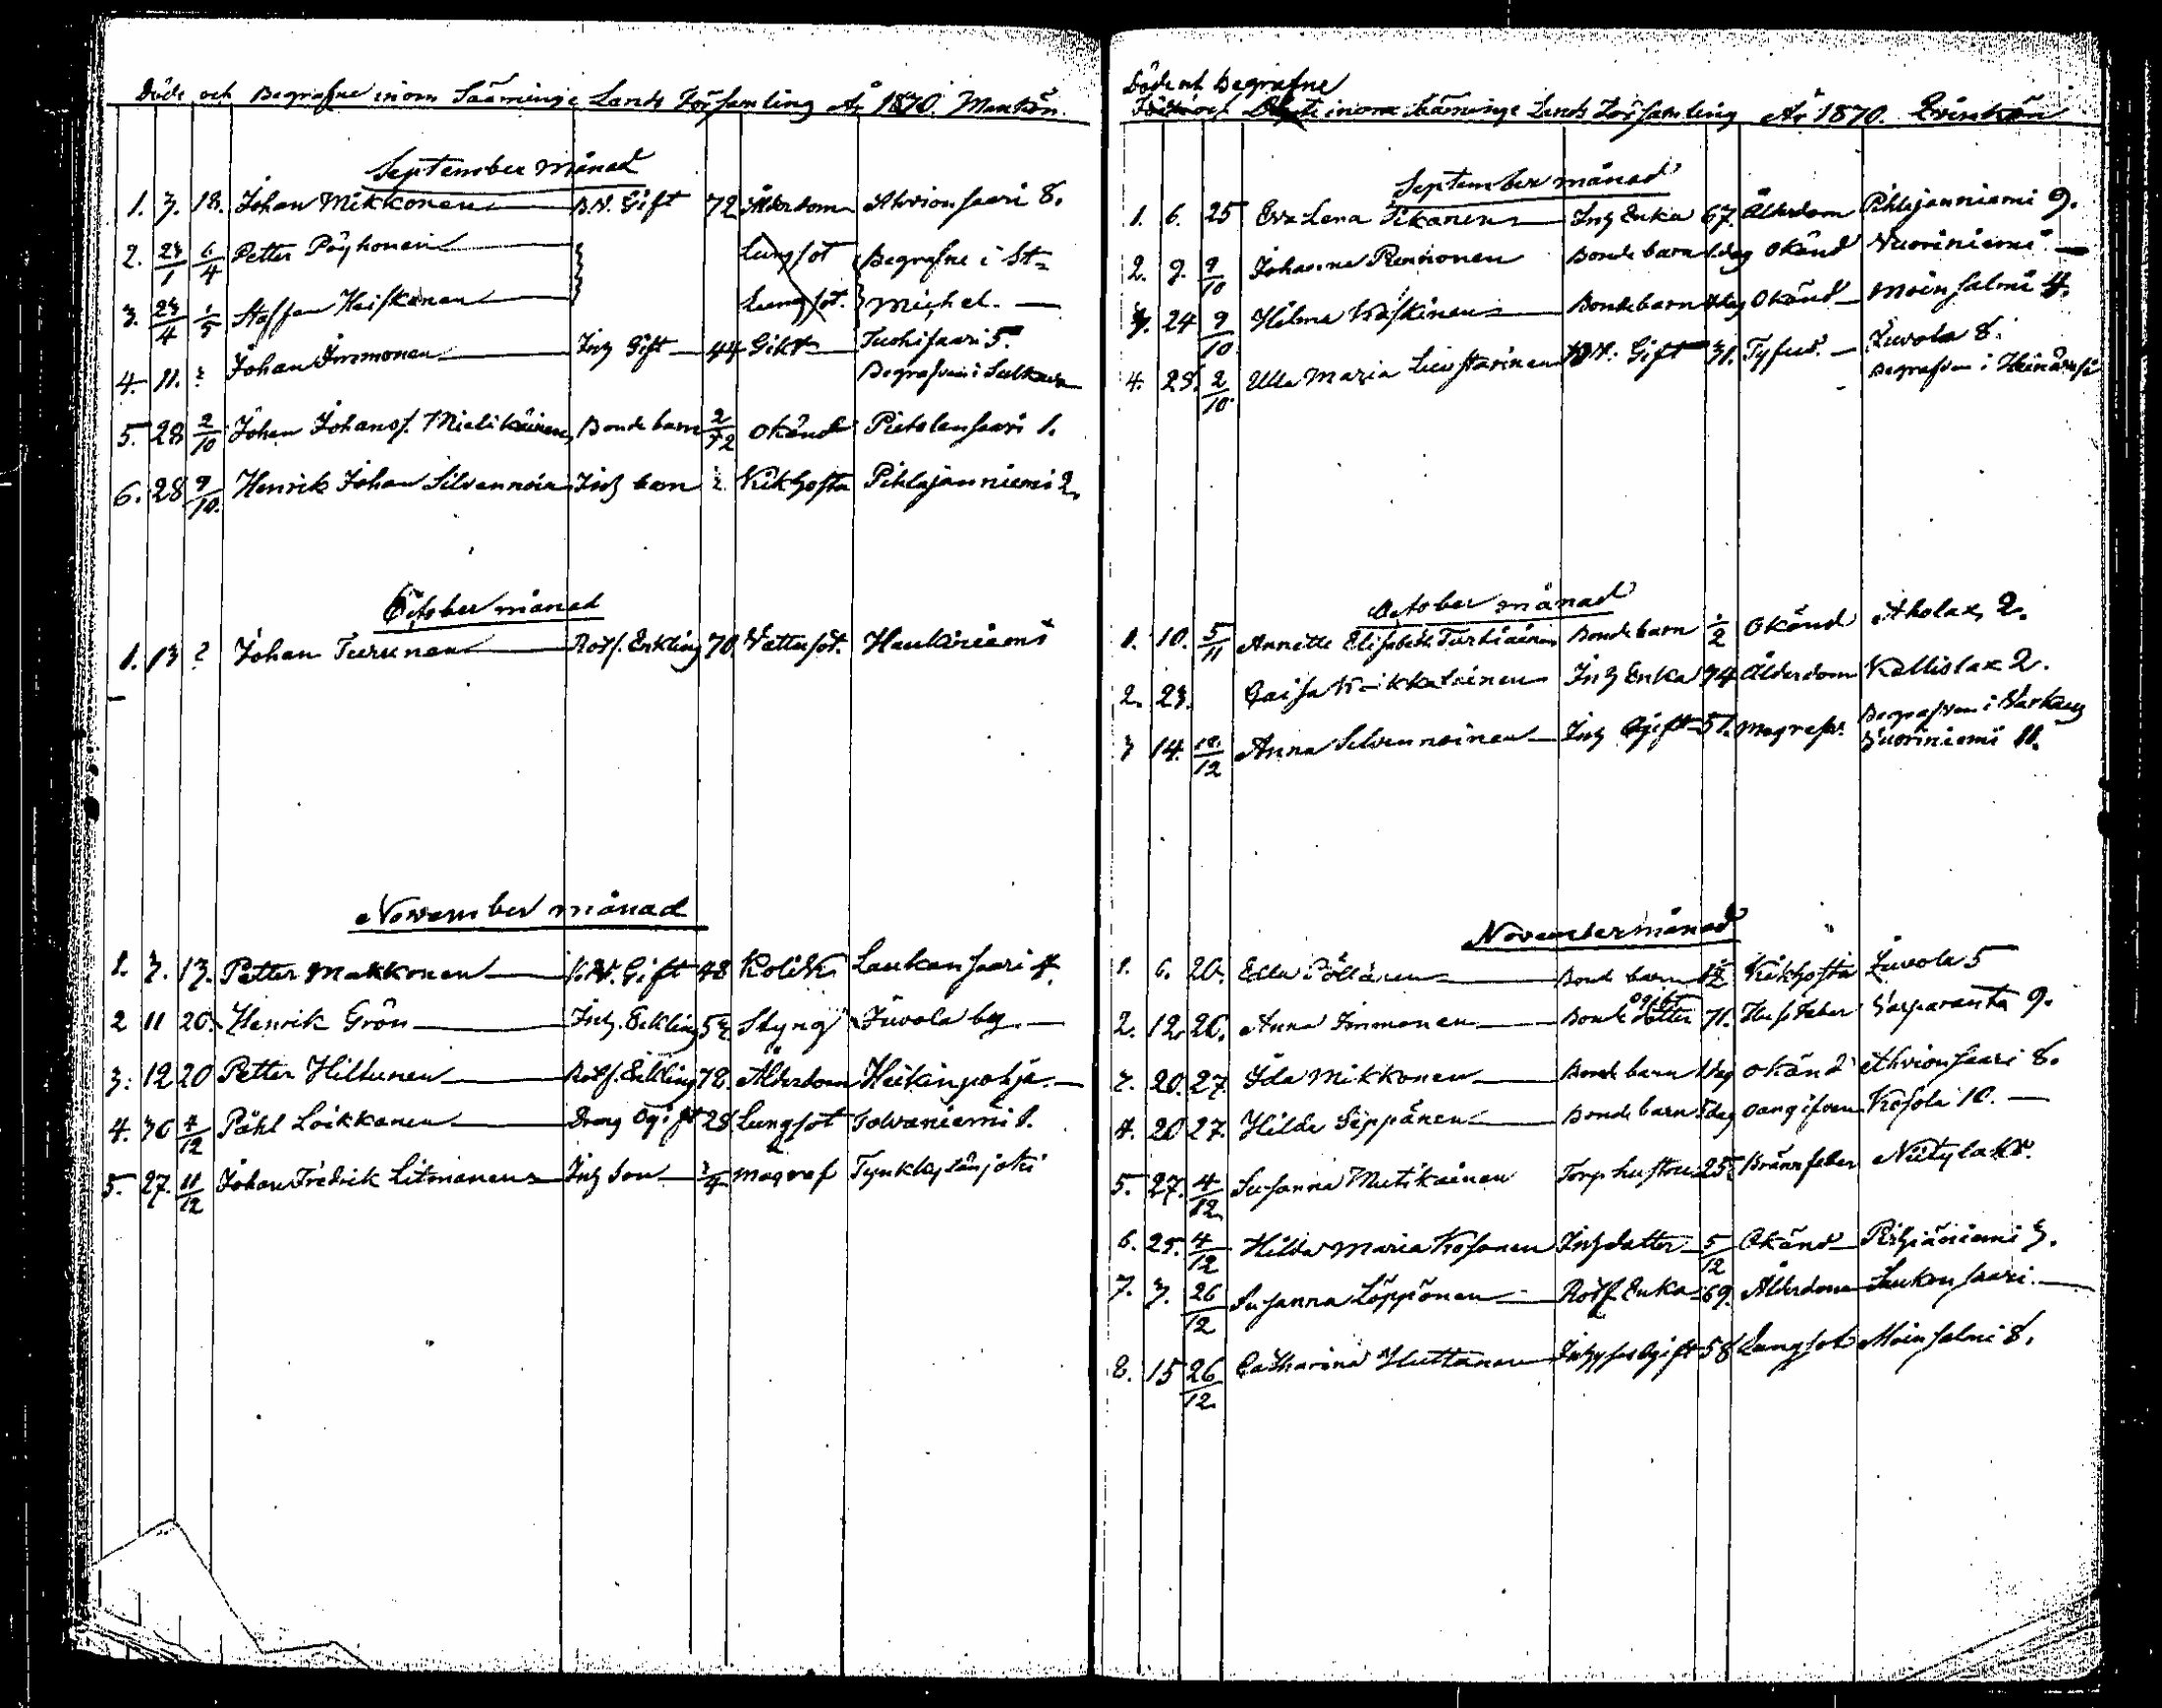 Döde och Begrafne inom Sääminge Lands Församling År 1870. Mankön.
September månad
1. 3. 18. Johan Mikkonen B.N. Gift 72 Ålderdom Ahvionsaari 8.
2. 23/1 6/4 Petter Pöyhonen Lungsot Begrafne i St:
3. 23/4 1/5 Staffan Heiskanen Lungsot. Michel.
4. 11. ? Johan Immonen Inh Gift 44 Gikt Tuohisaari 5.
Begrafven i Sulkava
5. 28 2/10 Johan Johans. Mielikäinen Bonde barn 2/72 okänd Pietolansaari 1.
6. 28 9/10. Henrik Johan Silvennoin Inh barn Kikhosta Pihlajanniemi 2.
October månad
1. 13 ? Johan Turunen Rotf. Enkling 70. Vattusot. Haukiniemi
November månad
1. 3. 13. Petter Makkonen Gift 48 Kolik Laukansaari 4.
2 11 20. Henrik Grön Inh. Enkling 53. Styng Juvola by
3. 12 20 Petter Hiltunen Rotf. Enkling 72. Ålderdom Heikinpohja.
4. 30 4/12 Påhl Loikkanen Dreng Ogift 28. Lungsot Tolvaniemi 1.
5. 27. 11/12 Johan Fredrik Litmanen Inh Son magref Tynkkylänjoki
Döde och Begrafne
inom Sääminge Lands Församling År 1870. Qvinkön
September månad
1. 6. 25 Eva Lena Tikanen Inh Enka 67. Ålderdom Pihlajanniemi 9.
2. 9. 9/10 Johanna Reinonen Bonde barn 1 dag okänd Vuoriniemi
3. 24 9/10. Hilma Käskinen Bonde barn dag Okänd Moinsalmi 4.
4. 29. 2/10. Ulla Maria Gift 31. Tyfus. Juvola 8.
Begrafven i Heinävesi
October månad
1. 10. 5/11 Annette Elisabeth Turtiainen Bonde barn 1/2 Okänd Aholax 2.
2. 23. Caisa Inh Enka 74 Ålderdom Kallislax 2.
Begrafven i Varkaus
3 14. 18/12 Anna Silvennoinen Inh Ogift 51. magrefv. Vuoriniemi 11.
November månad
1. 6. 20. Ella Pöllänen Bonde barn 1/2 Kikhosta Juvola 5
2. 12. 26. Anna Immonen Bonde ogift dotter 71. Varparanta 9.
3. 20. 27. Ida Mikkonen Bonde barn 1 dag okänd Ahvionsaari 8.
4. 20 27. Hilda Seppänen Bonde barn dag oangifven Kosola 10.
5. 27. 4/12. Susanna Mutikainen Torp hustru 25. Brännfeber Niitylaks.
6. 25. 4/12 Hilda Maria Kosonen Inh dotter 5/12 Okänd Pihjäniemi 3.
7. 3. 26/12 Susanna Löppönen Rotf Enka 69. Ålderdom Laukansaari.
8. 15 26/12. Catharina Huttunen 58 Lungsot Moinsalmi 8.